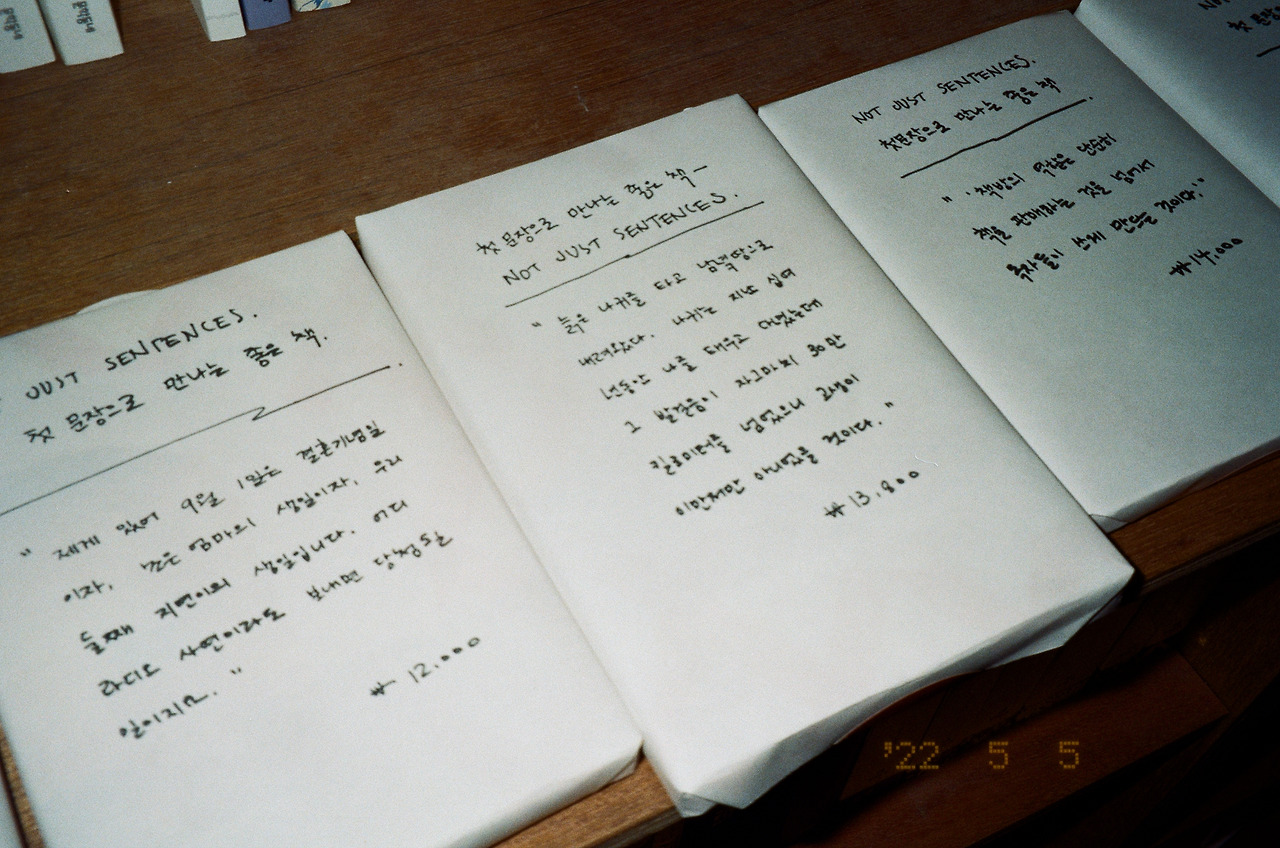 JUST SENTENCES.
첫 문장으로 만나는 좋은 책.
" 제게 있어 9월 1일은 결혼기념일
이자, 엄마의 생일이자, 우리
둘째 지연이의 생일입니다. 어디
라디오 사연이라도 보내면 당첨될
일이지요. "
₩ 12,000
첫 문장으로 만나는 좋은 책 –
NOT JUST SENTENCES.
" 늙은 나귀를 타고 남쪽 땅으로
내려왔다. 나귀는 지난 십여
년동안 나를 태우고 다녔는데
그 발걸음이 자그마치 30만
킬로미터를 넘었으니 고생이
이만저만 아니었을 것이다. "
₩ 13,800
NOT JUST SENTENCES.
첫문장으로 만나는 좋은 책
" 책방의 역할은 단순히
책을 판매하는 것을 넘어서
독자들이 쓰게 만드는 것이다."
₩14,000
'22 5 5